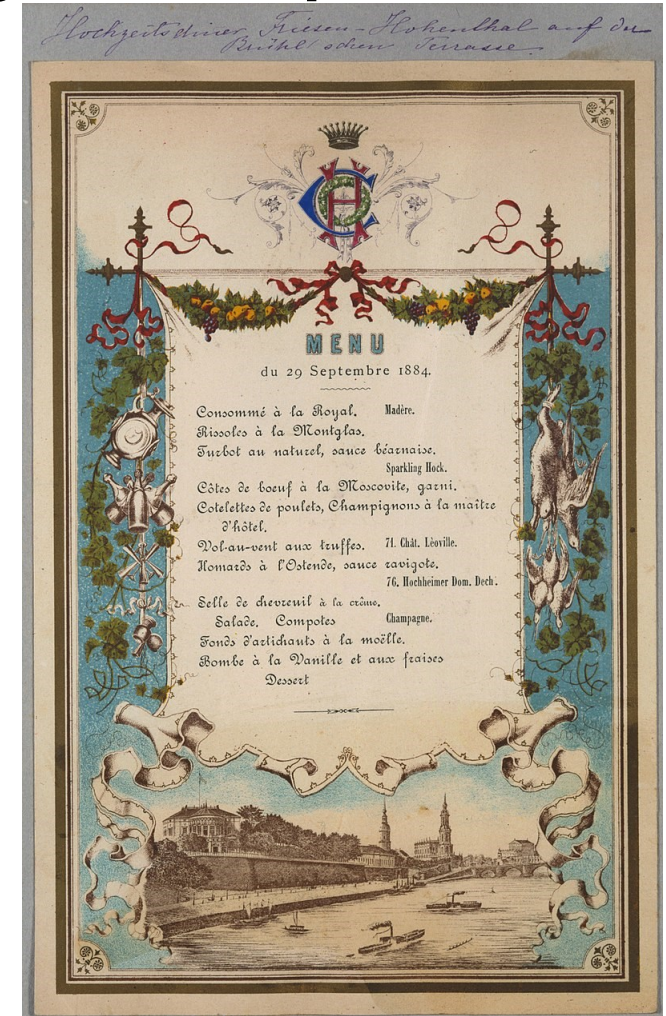 Hochzeitsdiner Friesen-Hohenthal auf der
Brühl'schen Terrasse.
MENU
du 29 Septembre 1884.
Consommé à la Royal. Madère.
Rissoles à la Montglas.
Turbot au naturel, sauce béarnaise.
Sparkling Hock.
Côtes de boeuf à la Moscovite, garni.
Cotelettes de poulets, Champignons à la maître
d'hôtel.
Vol-au-vent aux truffes. 71. Chât. Lèoville.
Homards à l'Ostende, sauce ravigote.
76. Hochheimer Dom. Dech.
Selle de chevreuil à la crême,
Salade. Compotes Champagne.
Fonds d'artichauts à la moëlle.
Bombe à la Vanille et aux fraises
Dessert